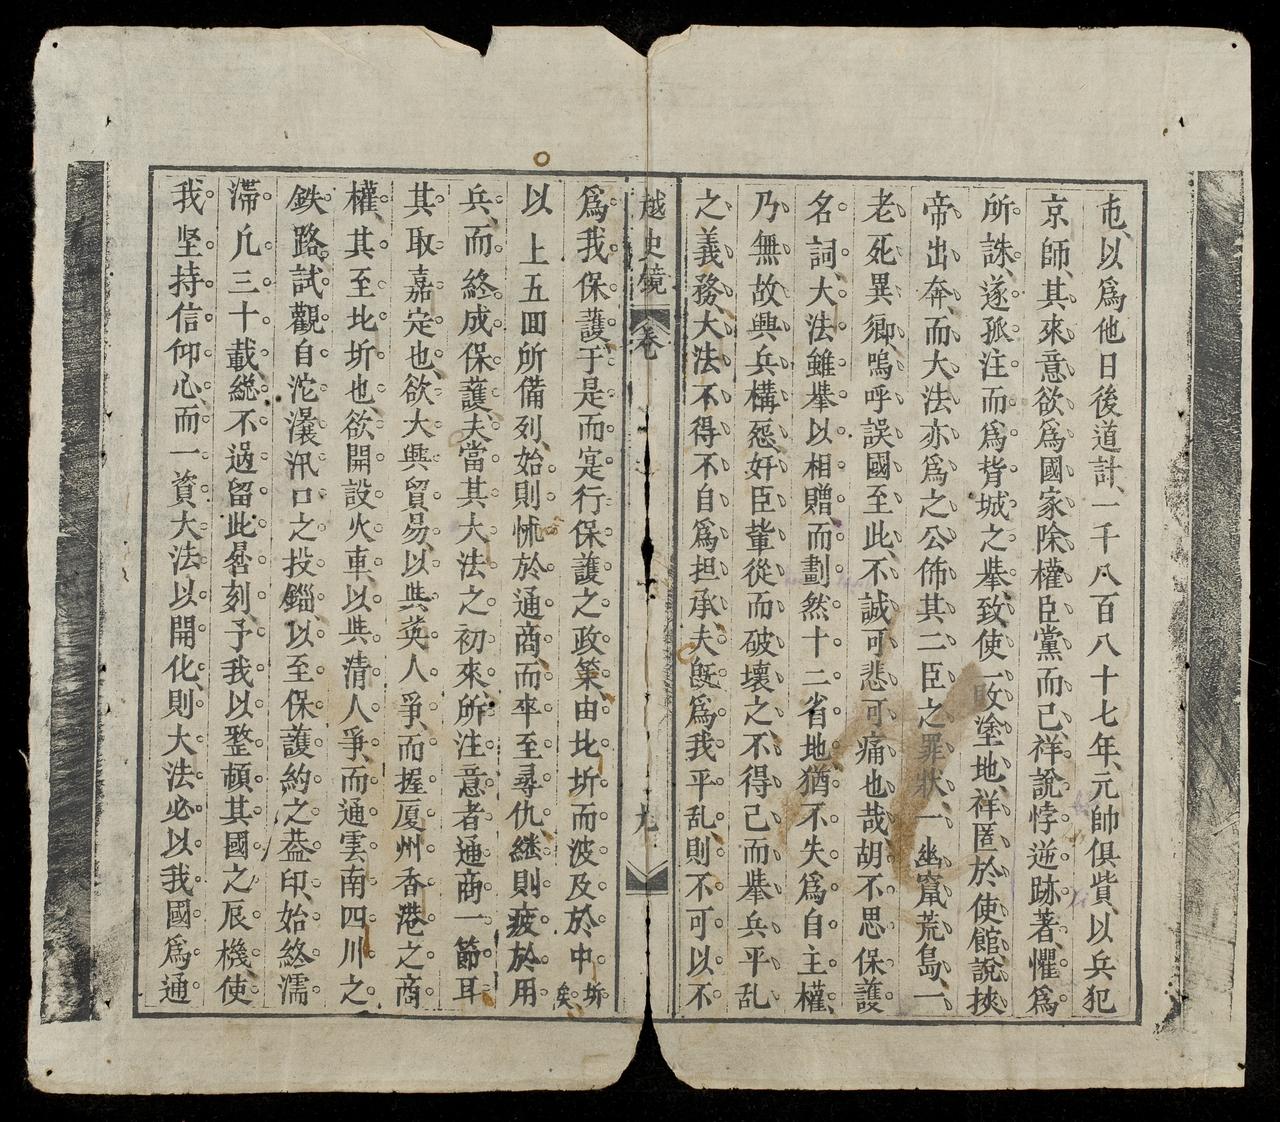 市、以爲他日後道計、一千八百八十七年、元帥俱貲、以兵犯
京師、其來意欲爲國家除權臣黨而已、祥說悖逆跡著、懼爲
所誅、遂孤注而爲背城之擧、致使一敗塗地、祥匿於使館、說挾
帝出奔、而大法亦爲之公佈其二臣之罪狀、一幽竄荒島、一
老死異鄉、嗚呼誤國至此、不誠可悲可痛也哉、胡不思保護
名詞、大法雖擧以相贈、而劃然十二省地、猶不失爲自主權、
乃無故興兵構怨、奸臣輩從而破壞之、不得已而擧兵平乱
之義務、大法不得不自爲担承、夫旣爲我平乱、則不可以不
越史鏡 卷 九
爲我保護、于是而寔行保護之政策、由北圻而波及於中圻矣
以上五囬所備列、始則怵於通商、而卒至尋仇、継則疲於用
兵、而終成保護、夫當其大法之初來、所注意者通商一節耳
其取嘉定也、欲大興貿易、以與英人爭、而握厦州香港之商
權、其至北圻也、欲開設火車、以與清人爭、而通雲南四川之
鉄路、試觀自沱㶞汛口之投錨、以至保護約之葢印、始終濡
滯凢三十載、総不過留此晷刻、予我以整頓其國之辰機、使
我坚持信仰心、而一資大法以開化、則大法必以我國爲通